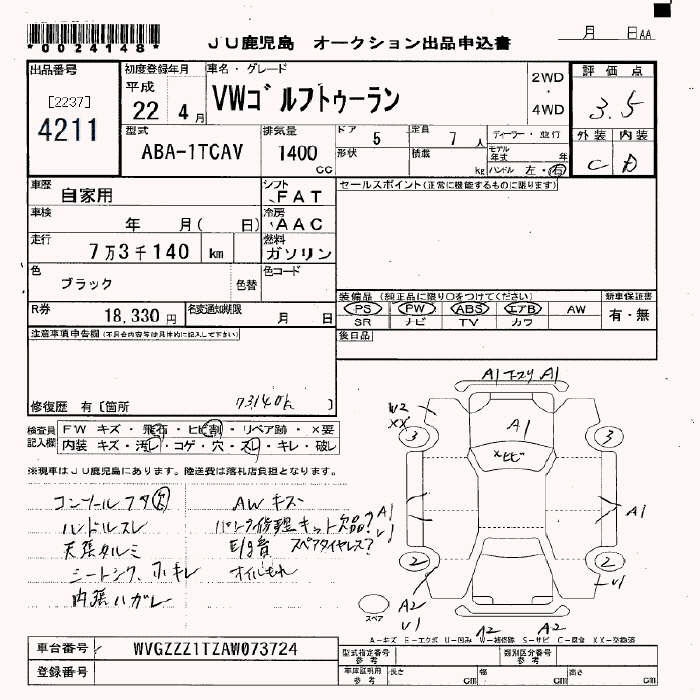 *0024148*
JU鹿児島 オークション出品申込書
月 日AA
出品番号
[2237]
4211
初度登録年月
平成
22 4月
車名・グレード
VWゴルフトゥーラン
2WD
・
4WD
評価点
3.5
外装 内装
C D
型式
ABA-1TCAV
排気量
1400
cc
ドア 5
定員 7人
ディーラー・並行
形状
積載 kg
モデル年式 年
ハンドル 左・右
車歴
自家用
シフト
FAT
セールスポイント(正常に機能するものに限ります)
車検 年 月( 日)
冷房
AAC
走行
7万3千140 km
燃料
ガソリン
色
ブラック
色替
色コード
R券
18,330円
名変通知期限 月 日
装備品(純正品に限り○をつけてください)
PS PW ABS エアB AW
SR ナビ TV カワ
新車保証書
有・無
後日品
注意事項申告欄(不具合内容等は具体的に記入して下さい)
修復歴 有〔箇所 〕
73140k
検査員記入欄
FW キズ・飛石・ヒビ割・リペア跡・×要
内装 キズ・汚レ・コゲ・穴・スレ・キレ・破レ
※現車はJU鹿児島にあります。陸送費は落札店負担となります。
コンソールフタ欠
ハンドルスレ
天張タルミ
シートシワ、ホキレ
内張ハガレ
AWキズ
パンク修理キット欠品?
E/g音 スペアタイヤレス?
オイルモレ
A1 スリ A1
W2
XX
A1
×ヒビ
3
3
A1
V1
A1
2
2
V1
A2
V1
A2
A2
スペア
A-キズ E-エクボ U-凹み W-補修跡 S-サビ C-腐食 XX-交換済
車台番号 WVGZZZ1TZAW073724
登録番号
型式指定番号
参考
類別区分番号
参考
車庫証明用
参考
長さ cm
幅 cm
高さ cm